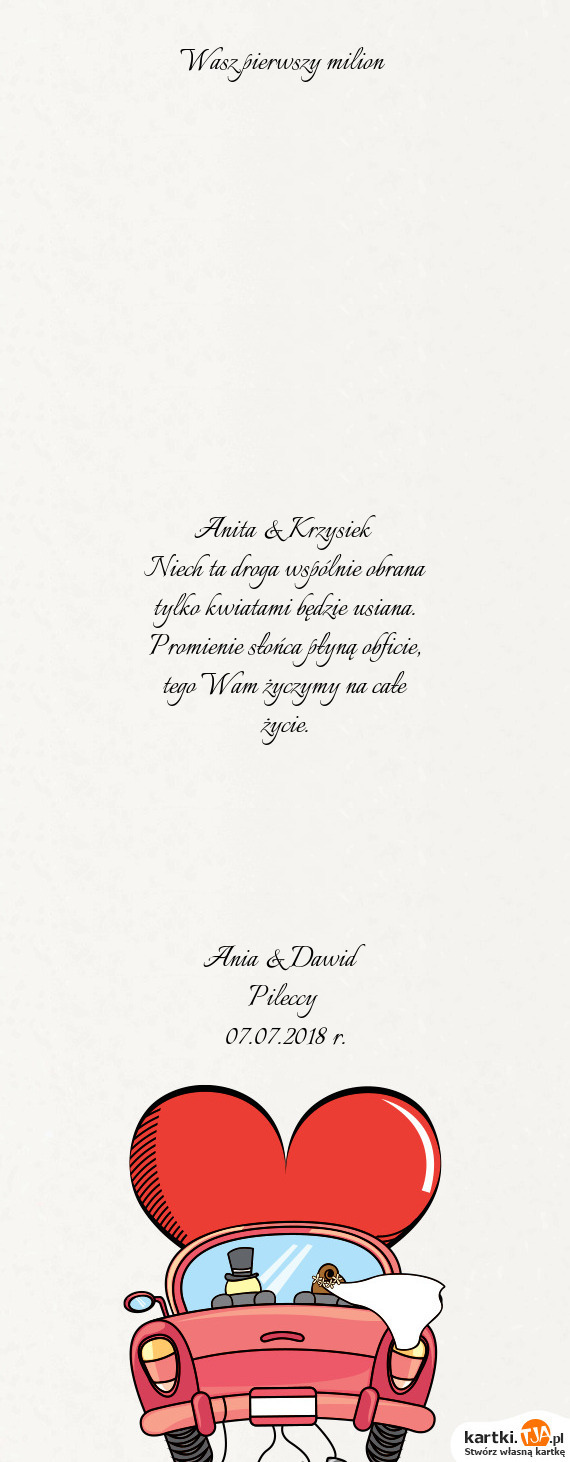 Wasz pierwszy milion
Anita & Krzysiek
Niech ta droga wspólnie obrana
tylko kwiatami będzie usiana.
Promienie słońca płyną obficie,
tego Wam życzymy na całe
życie.
Ania & Dawid
Pileccy
07.07.2018 r.
kartki.TJA.pl
Stwórz własną kartkę